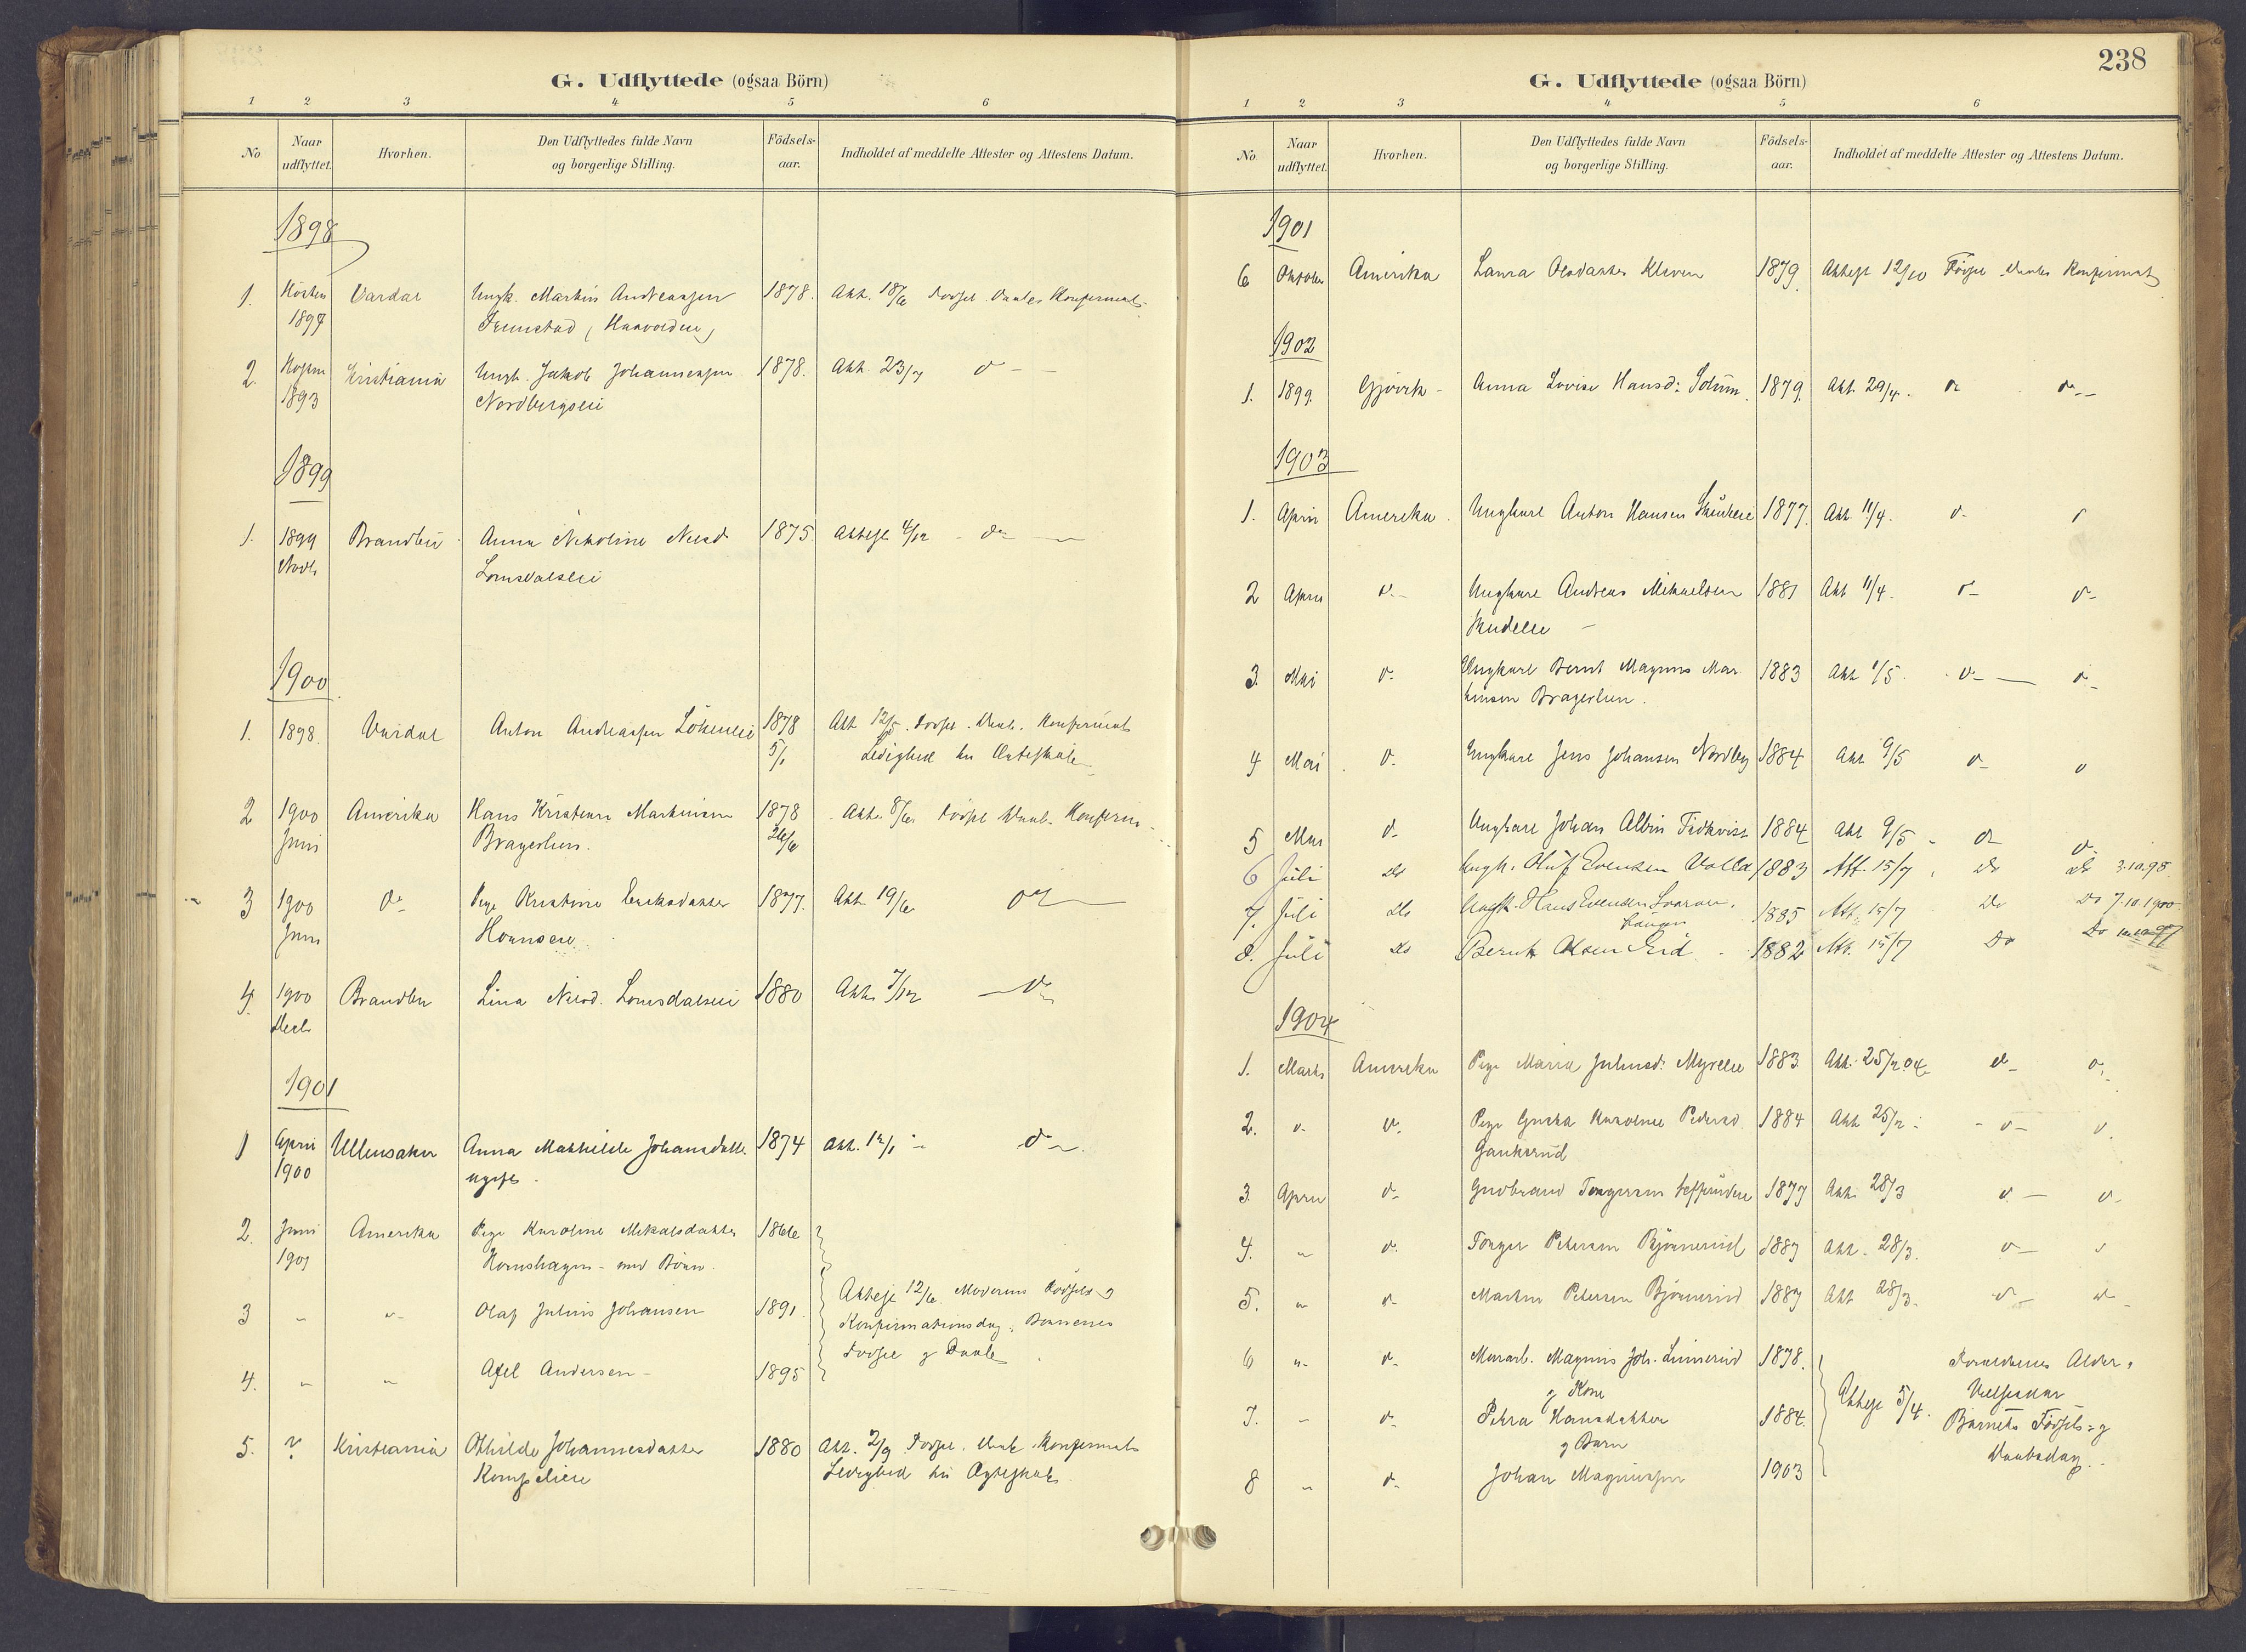 G. Udflyttede (ogsaa Börn)
1 2 3 4 5 6
No Naar udflyttet. Hvorhen. Den Udflyttedes fulde Navn og borgerlige Stilling. Födsels-aar. Indholdet af meddelte Attester og Attestens Datum.
1898
1. Hösten Vardal Ungk. Martin Andreassen 1878. Att. 18/6 Födsel Daab Konfirmat
1897
2. 1893 Kristiania Ungk. Jakob Johannessen 1878. Att. 23/7 do
Nordbergseie
1899
1. 1899 Brandbu Anna Nikoline Nilsd 1875 Attest 4/12 do
Novb. Lomsdalseie
1900
1. 1898. Vardal Anton Andreassen 1878 Att 12/5 Födsel. Daab. Konfirmat
5/1 Ledighed til Ægteskab
2 1900 Amerika Hans Kristian Martinsen 1878 Att. 8/6 Födsel Daab Konfirm
Juni Bragerlien. 26/6
3 1900 do Pige Kristine Eriksdatter 1877. Att 19/6 do
Juni
4. 1900 Brandbu Lina Nilsd. Lomsdalseie 1880 Att. 7/12 do
Decb
1901
1 April Ullensaker Anna Mathilde Johansdatter 1874 Att. 12/1 do
1900 ugift.
2. Juni Amerika Pige Karoline Mikalsdatter 1866
1901 Hornshagen - med Börn.
3 " " Olaf Julius Johansen 1891. Attest 12/6. Moderens Födsels og
Konfirmationsdag. Börnenes
Födsel og Daab
4. " " Axel Andersen 1895
5. ? Kristiania Othilde Johannesdatter 1880 Att. 2/9 Födsel. Daab. Konfirmat
Ledighed til Ægteskab.
238
G. Udflyttede (ogsaa Börn)
1 2 3 4 5 6
No. Naar udflyttet. Hvorhen. Den Udflyttedes fulde Navn og borgerlige Stilling. Födsels-aar. Indholdet af meddelte Attester og Attestens Datum.
1901
6 Oktober Amerika Laura Olsdatter Kleven 1879. Attest 12/10 Födsel Daab Konfirmat
1902
1. 1899. Gjövik Anna Lovise Hansd. 1879. Att. 29/4. do do
1903
1. April Amerika. Ungkarl Anton Hansen 1877. Att. 11/4. do do
2 April do Ungkarl Andreas Mikaelsen 1881 Att 11/4. do do
3. Mai do Ungkarl Bernt Magnus Mar 1883 Att 1/5. do do
tinsen Bragerlien.
4 Mai do Ungkarl Jens Johansen Nordby 1884 Att 9/5 do do
5 Mai do Ungkarl Johan Albin 1884 Att 9/5 do do
6 Juli do Ungk. Oluf Evensen Volla 1883 Att. 15/7 do do 3.10.98
7. Juli do Ungk. Hans Evensen 1885 Att. 15/7 do do 7.10.1900
8. Juli do Bernt Olsen Eid 1882 Att. 15/7 do do
1904
1. Marts Amerika Pige Maria Juliusd. Myreeie 1883 Att. 25/2 04 do do
2. do do Pige Gusta Karoline Pedersd. 1884 Att 25/2 do do
Gaukerud
3. April do Gudbrand 1877 Att. 28/3 do do
4. " do Petersen Björnerud 1883 Att. 28/3. do do
5. " do Martin Petersen Björnerud 1887 Att 28/3. do do
6 " do Murarb. Magnus Joh. Linnerud 1878. Forældrenes Alder,
og Kone Attest 5/4. Vielsesdag
7. " do Petra Hansdatter 1884. Barnets Födsels- og
og Barn Daabsdag.
8 " do Johan Magnussen 1903